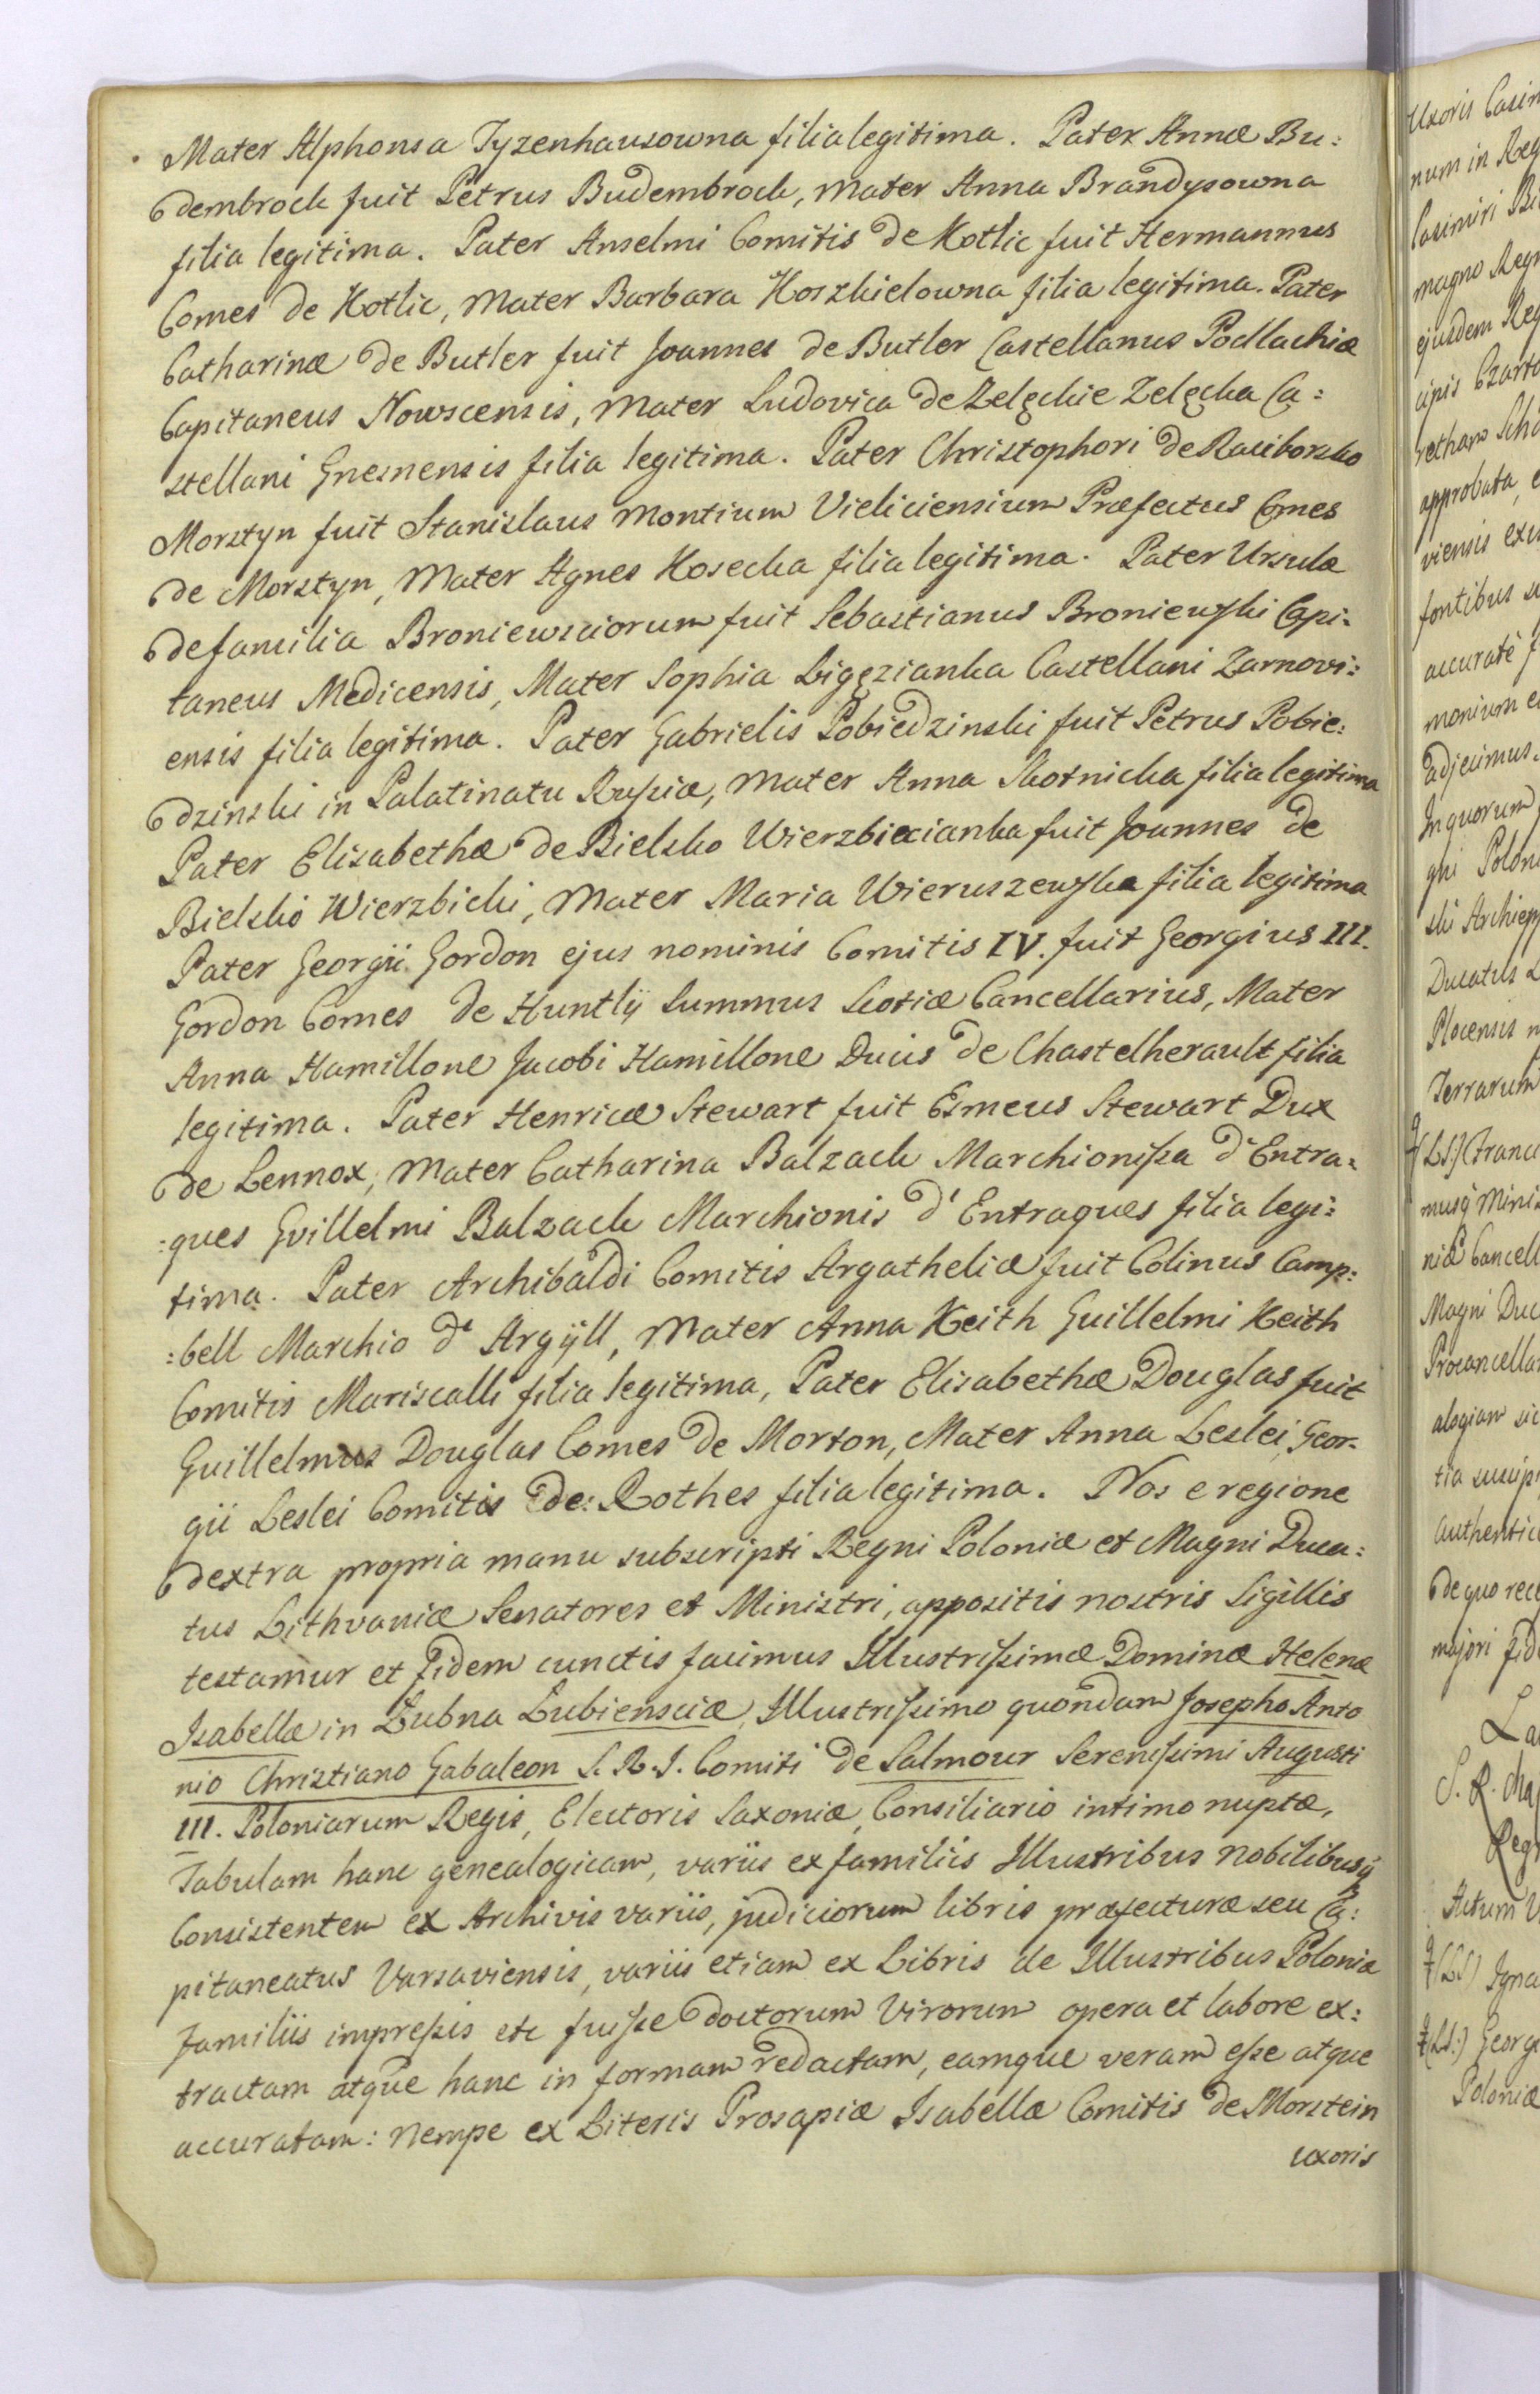 Mater Alphonsa Tyzenhausowna filia legitima. Pater Annæ Bu:
dembrock fuit Petrus Budembrock, Mater Anna Brandysowna
filia legitima. Pater Anselmi Comitis de Kotlic fuit Hermannus
Comes de Kotlic, Mater Barbara Koszkielowna filia legitima. Pater
Catharinæ de Butler fuit Joannes de Butler Castellanus Podlachiæ
Capitaneus Nowscensis, Mater Ludovica de Zelęckie Zelęcka Ca:
stellani Gnesnensis filia legitima. Pater Christophori de Raciborsko
Morsztyn fuit Stanislaus Montium Vieliciensium Præfectus Comes
de Morsztyn, Mater Agnes Kosecka filia legitima. Pater Ursulæ
de familia Broniewsciorum fuit Sebastianus Broniewski Capi:
taneus Medicensis, Mater Sophia Ligęzianka Castellani Zarnovi:
ensis filia legitima. Pater Gabrielis Pobiedzinski fuit Petrus Pobie:
dzinski in Palatinatu Russiæ, Mater Anna Skotnicka filia legitima
Pater Elisabethæ de Bielsko Wierzbiecianka fuit Joannes de
Bielsko Wierzbicki, Mater Maria Wieruszewska filia legitima
Pater Georgii Gordon ejus nominis Comitis IV. fuit Georgius III.
Gordon Comes de Huntly Summus Scotiæ Cancellarius, Mater
Anna Hamillone Jacobi Hamillone Ducis de Chastelherault filia
legitima. Pater Henricæ Stewart fuit Esmeus Stewart Dux
de Lennox, Mater Catharina Balzack Marchionissa d'Entra:
:ques Gvillelmi Balzack Marchionis d'Entraques filia legi:
tima. Pater Archibaldi Comitis Argatheliæ fuit Colinus Camp:
:bell Marchio d'Argÿll, Mater Anna Keith Guillelmi Keith
Comitis Mariscalli filia legitima, Pater Elisabethæ Douglas fuit
Guillelmus Douglas Comes de Morton, Mater Anna Leslei Geor-
gii Leslei Comitis de: Rothes filia legitima. Nos e regione
dextra propria manu subscripti Regni Poloniæ et Magni Duca:
tus Lithvaniæ Senatores et Ministri, appositis nostris Sigillis
testamur et fidem cunctis facimus Illustrissimæ Dominæ Helenæ
Isabellæ in Łubna Łubiensciæ, Illustrissimo quondam Josepho Anto
nio Christiano Gabaleon S. R. I. Comiti de Salmour Serenissimi Augusti
III. Poloniarum Regis, Electoris Saxoniæ, Consiliario intimo nuptæ,
Tabulam hanc genealogicam, variis ex familiis Illustribus Nobilibusq
Consistentem ex Archivis variis, judiciorum libris præfecturæ seu Ca:
pitaneatus Varsaviensis, variis etiam ex Libris de Illustribus Polonia
familiis impressis etc fuisse doctorum Virorum opera et labore ex:
tractam atque hanc in formam redactam, eamque veram esse atque
accuratam: Nempe ex Literis Prosapiæ Isabellæ Comitis de Morstein
uxoris